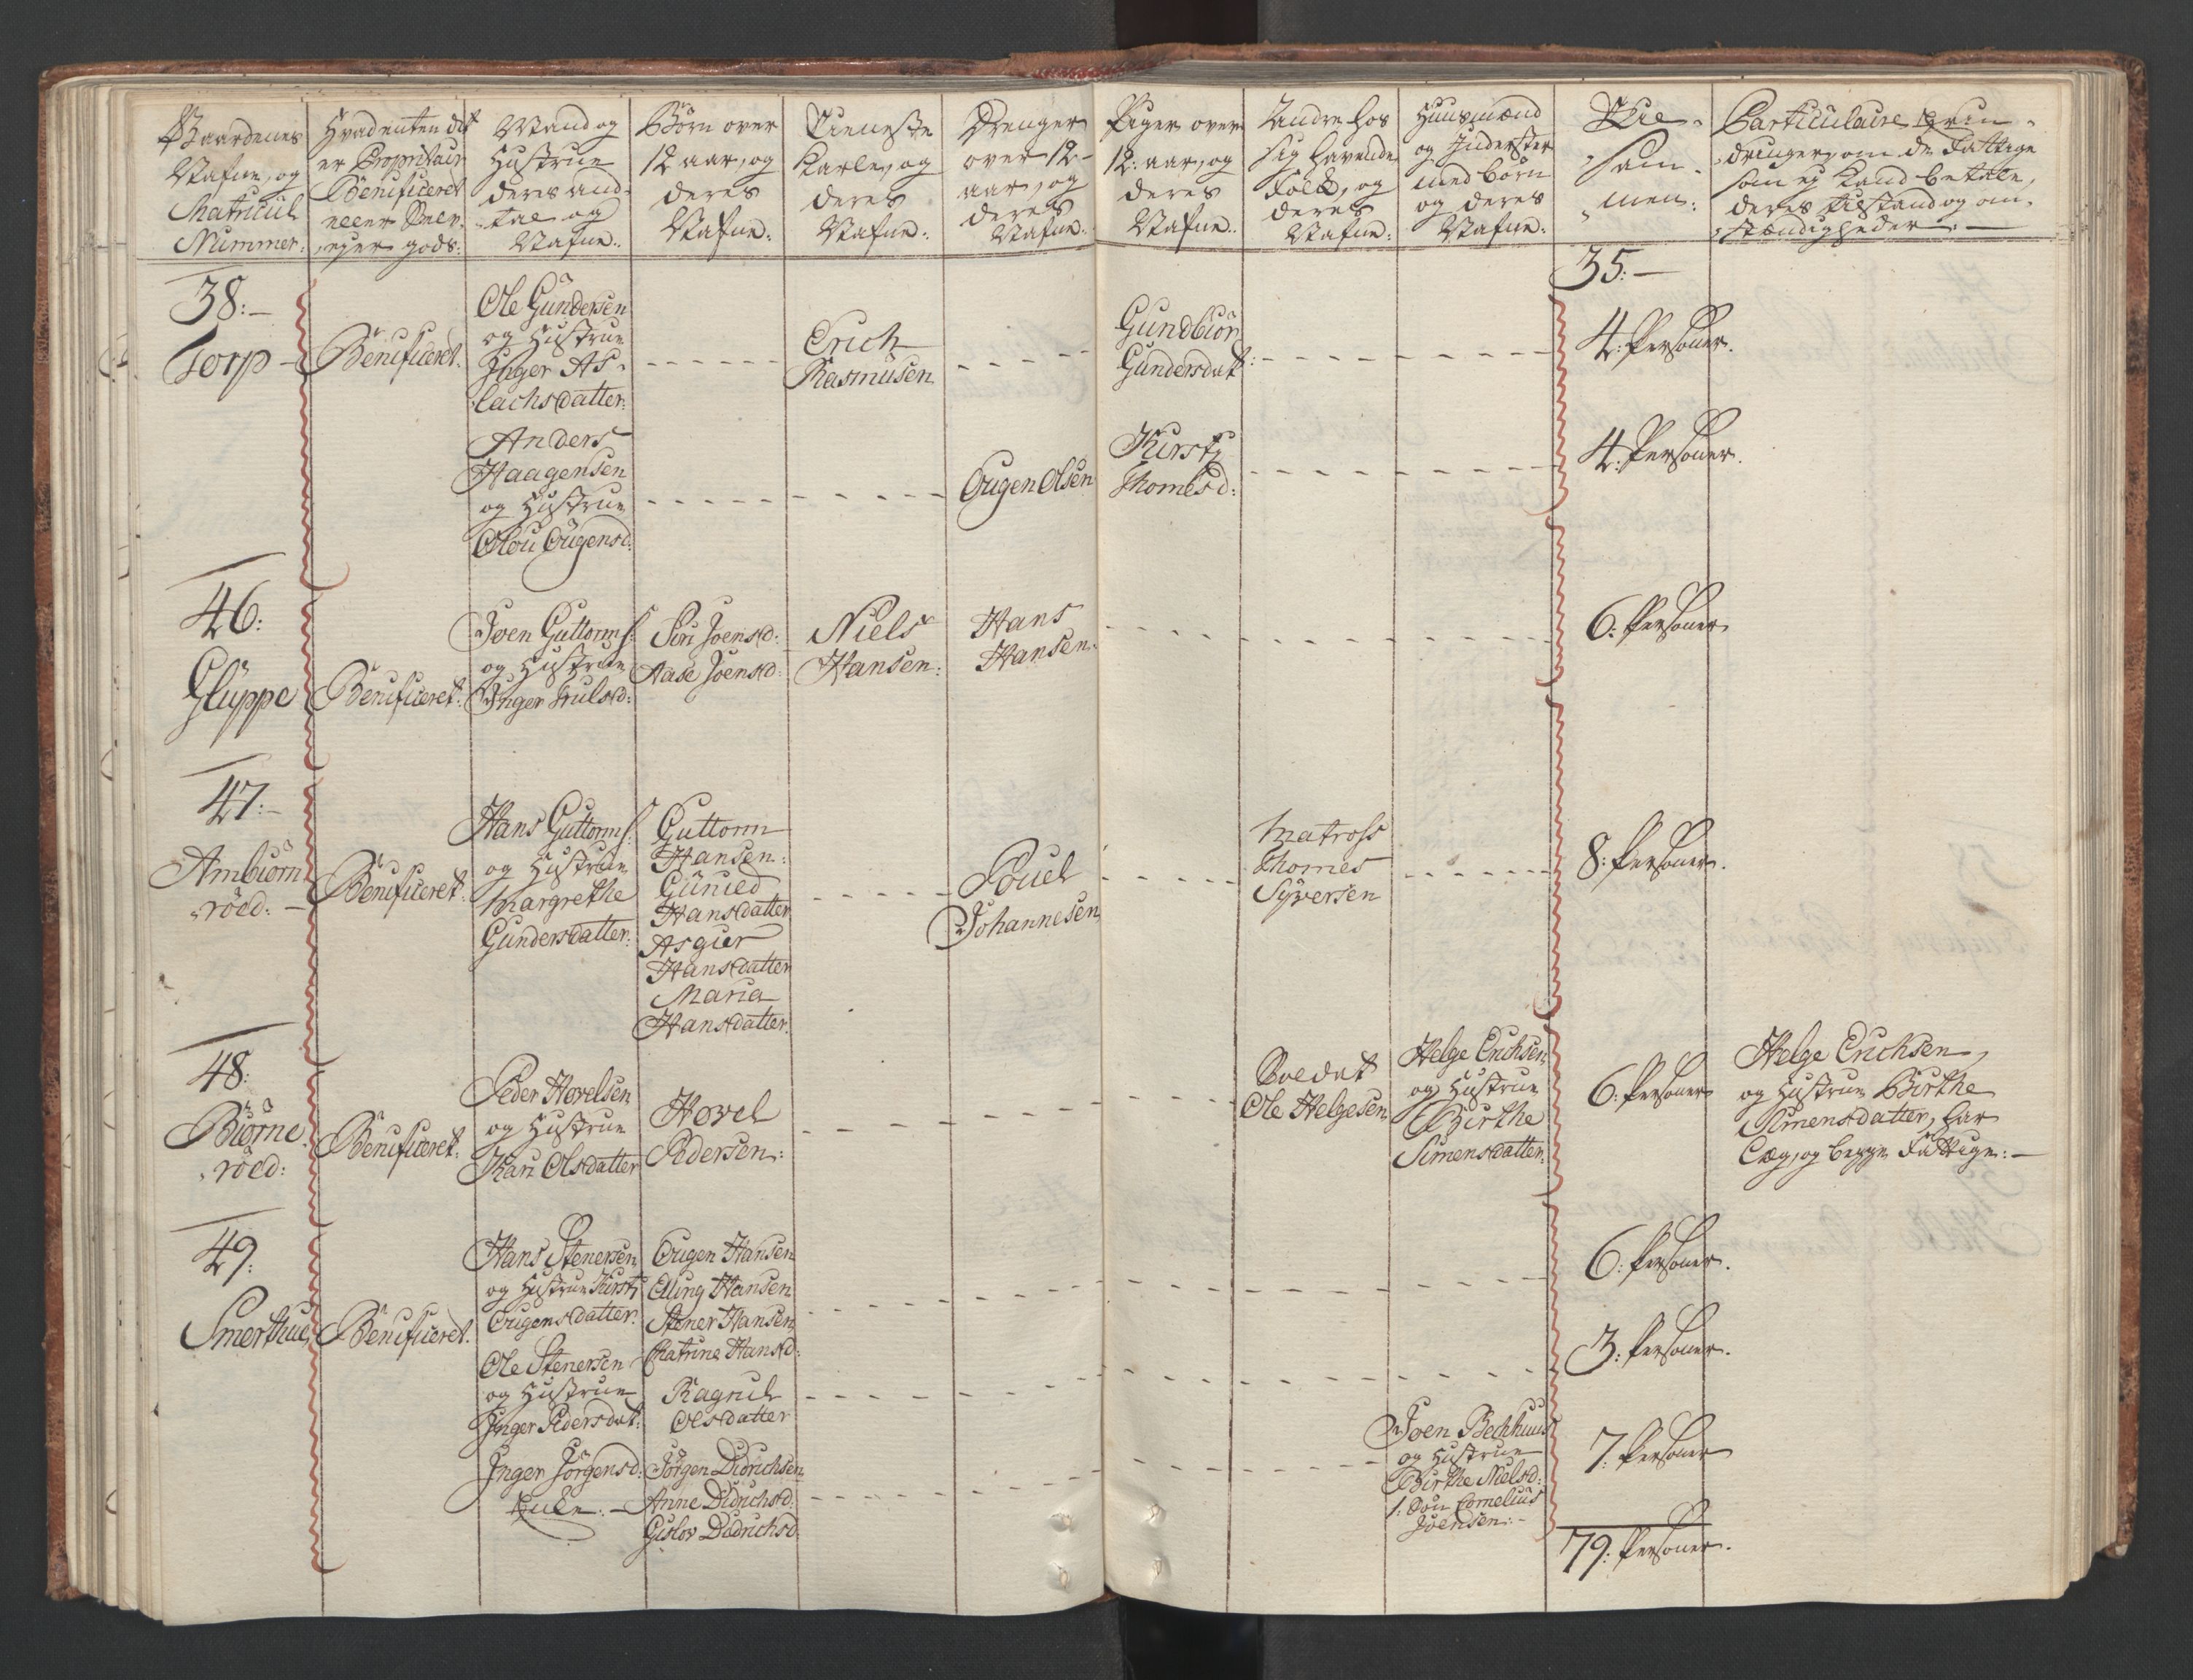 Gaardenes
Nafne, og
Matricul
Nummer:
Hvad enten det
er Propritair
Benificeret
eller Selv-
ejer gods:
Mand og
Hustrue
deres and-
tal og
Nafne:
Börn over
12 aar, og
deres
Nafne:
Tieneste
Karle, og
deres
Nafne:
Drenger
over 12-
aar, og
deres
Nafne:
Piger over
12: aar, og
deres
Nafne:
Andre hos
sig havende
Folck, og
deres
Nafne:
Huusmænd
og Inderster
med börn
og deres
Nafne:
Til-
sam-
men:
Particulaire Erin-
dringer, om de Fattige
som ej kand betale,
deres tilstand og om-
stændigheder:
35:
38:
Torp
Benificeret.
Ole Gundersen
og Hustrue
Inger As-
lachsdatter:
Erich
Rasmusen
Gundbiör
Gundersdat:
4: Personer.
Anders
Haagensen
og Hustrue
Olou Ougensd:
Ougen Olsen
Kirstj
Thomesd:
4: Personer.
46:
Gluppe
Benificeret:
Joen Guttorms:
og Hustrue
Inger Trulsd:
Siri Joensd:
Aase Joensd:
Niels
Hansen:
Hans
Hansen:
6: Personer.
47:
Ambiörn
röed:
Benificeret:
Hans Guttorms:
og Hustrue
Margrethe
Gundersdatter:
Guttorm
Hansen:
Gunied
Hansdatter
Asgier
Hansdatter
Maria
Hansdatter:
Pouel
Johannesen
Matross
Thomes
Syversen
8: Personer.
48:
Biörne
röed:
Benificeret:
Peder Hovelsen
og Hustrue
Kari Olsdatter
Hovel
Pedersen:
Soldat
Ole Helgesen
Helge Erichsen
og Hustrue
Birthe
Simensdatter:
6: Personer
Helge Erichsen,
og Hustrue Birthe
Simensdatter, har
Læg, og begge Fattige:
49:
Smerthue
Benificeret.
Hans Stenersen
og Hustrue Kirstj
Ougensdatter:
Ougen Hansen
Elling Hansen
Stener Hansen
Chatrine Hansd:
6: Personer.
Ole Stenersen
og Hustrue
Inger Pedersdat:
Ragnil
Olsdatter
3: Personer.
Inger Jörgensd:
Enke:
Jörgen Didrichsen
Anne Didrichsd:
Gislov Didrichsd:
Joen Bechhuus
og Hustrue
Birthe Nielsd:
1: Sön Cornelius
Joensen:
7: Personer
79: Personer.